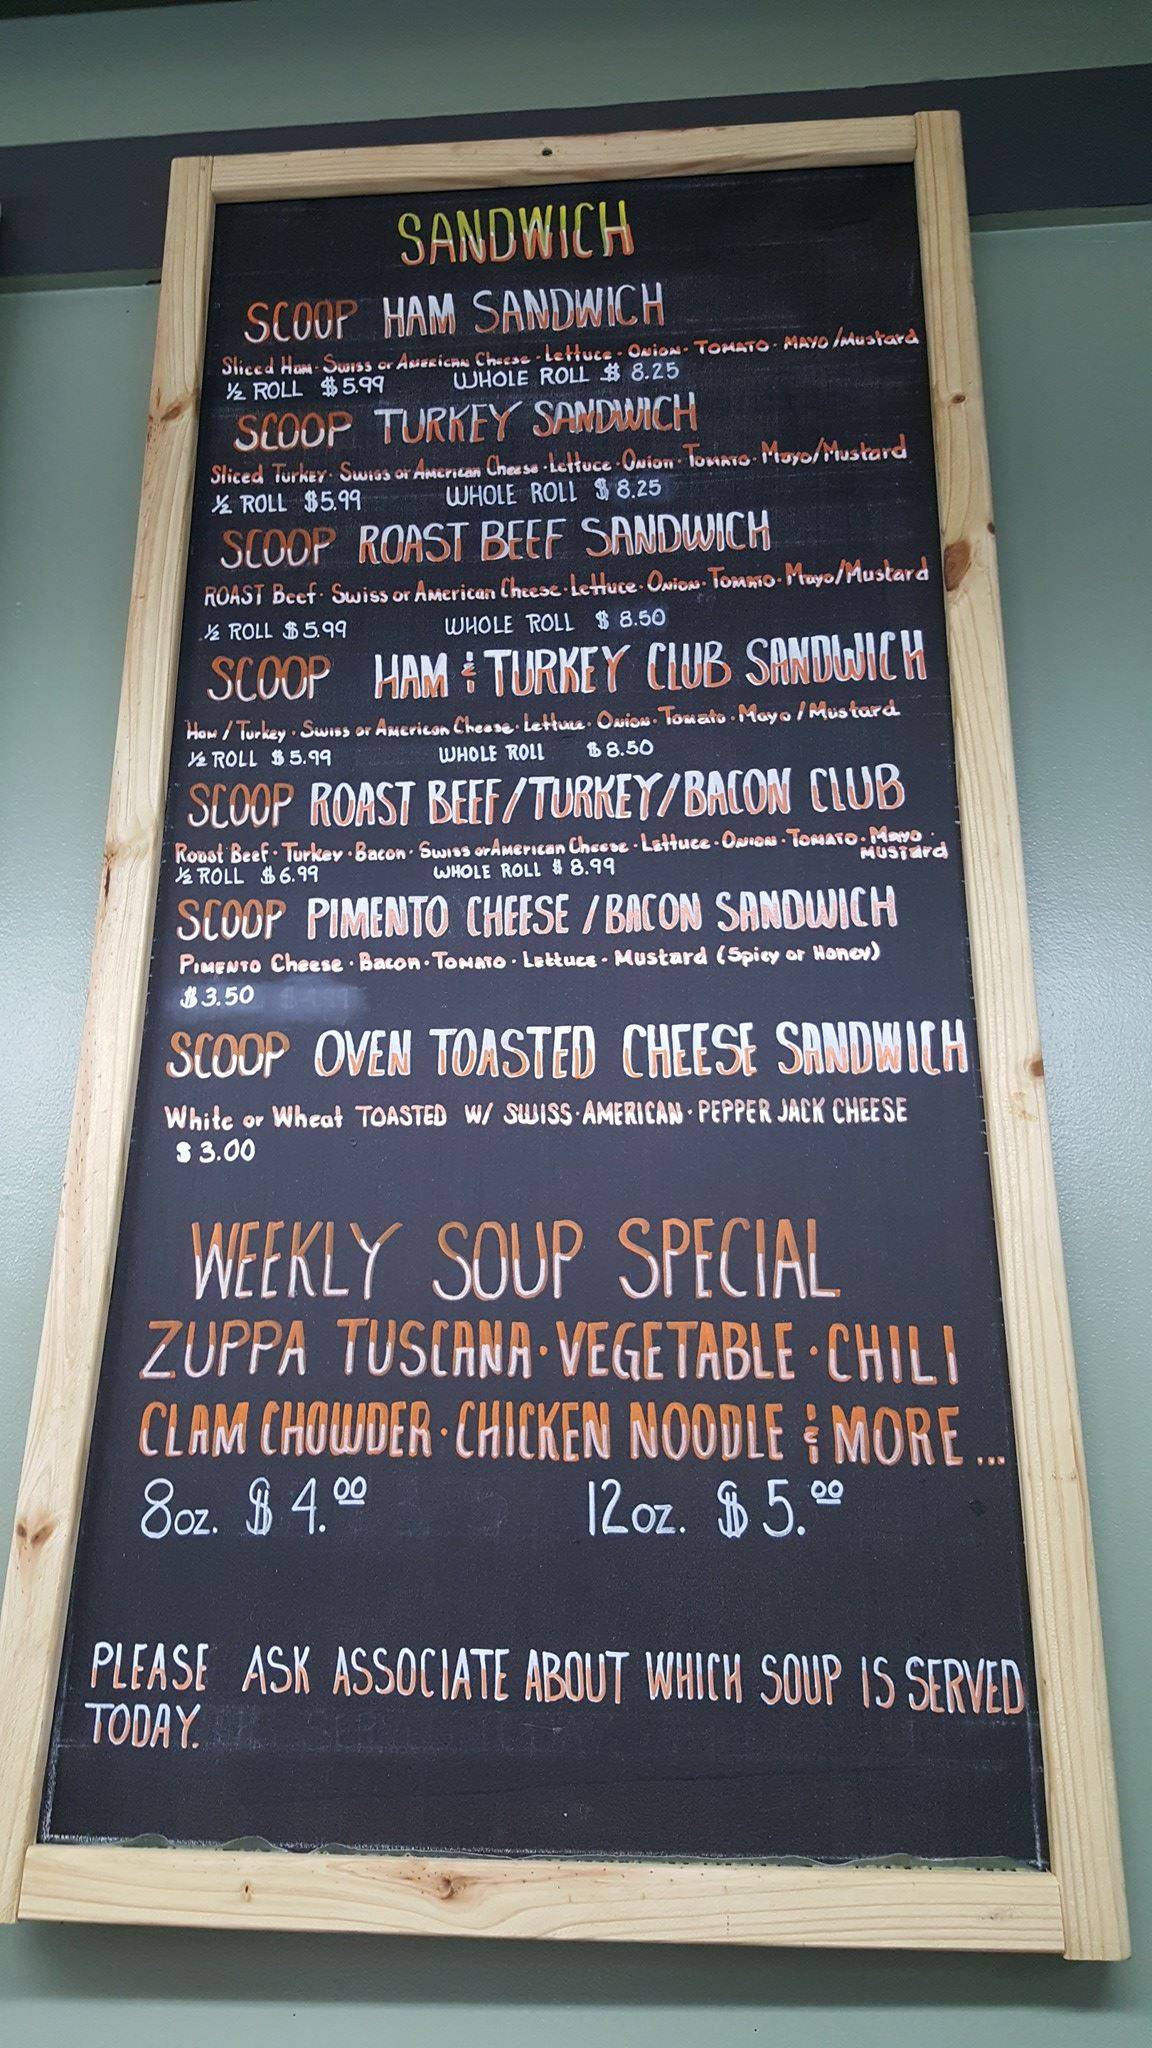 SANDWICH
SCOOP HAM SANDWICH
Sliced Ham · Swiss or American Cheese · Lettuce · Onion · TOMATO · MAYO/Mustard
½ ROLL $5.99 WHOLE ROLL $ 8.25
SCOOP TURKEY SANDWICH
Sliced Turkey · Swiss or American Cheese · Lettuce · Onion · Tomato · Mayo/Mustard
½ ROLL $5.99 WHOLE ROLL $ 8.25
SCOOP ROAST BEEF SANDWICH
ROAST Beef · Swiss or American Cheese · Lettuce · Onion · Tomato · Mayo/Mustard
½ ROLL $5.99 WHOLE ROLL $ 8.50
SCOOP HAM & TURKEY CLUB SANDWICH
Ham / Turkey · Swiss or American Cheese · Lettuce · Onion · Tomato · Mayo / Mustard
½ ROLL $5.99 WHOLE ROLL $8.50
SCOOP ROAST BEEF/TURKEY/BACON CLUB
Roast Beef · Turkey · Bacon · Swiss or American Cheese · Lettuce · Onion · TOMATO · Mayo ·
MUSTARD
½ ROLL $6.99 WHOLE ROLL $ 8.99
SCOOP PIMENTO CHEESE / BACON SANDWICH
PIMENTO Cheese · Bacon · TOMATO · Lettuce · Mustard (Spicy or Honey)
$3.50
SCOOP OVEN TOASTED CHEESE SANDWICH
White or Wheat TOASTED W/ SWISS · AMERICAN · PEPPER JACK CHEESE
$3.00
WEEKLY SOUP SPECIAL
ZUPPA TUSCANA · VEGETABLE · CHILI
CLAM CHOWDER · CHICKEN NOODLE & MORE...
8oz. $4.00 12oz. $5.00
PLEASE ASK ASSOCIATE ABOUT WHICH SOUP IS SERVED
TODAY.